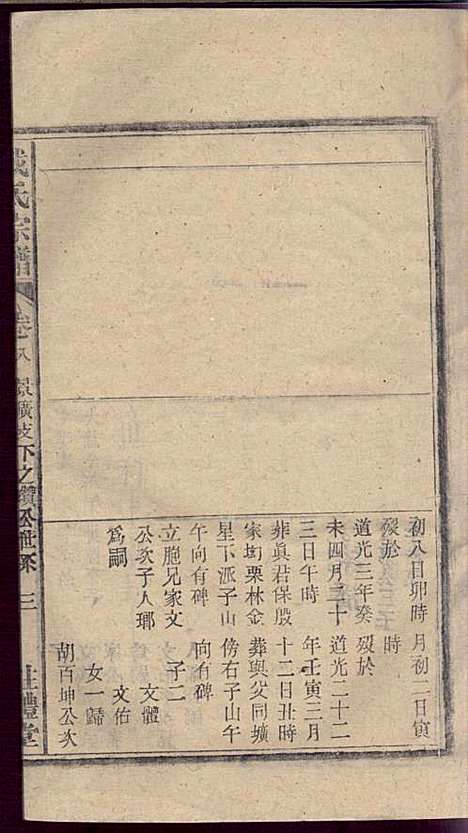 初八日卯時
殁於
道光三年癸
未四月三十
三日午時
葬真君保殷
家㘭栗林金
星下派子山
午向有碑
立胞兄家文
公次子人瑯
爲嗣
月初二日寅
時
殁於
道光二十二
年壬寅三月
十二日丑時
葬與父同壙
傍右子山午
向有碑
子二
文體
文佑
女一歸
胡百坤公次
氏宗譜
卷八
下之鑽公世系
三
禮堂